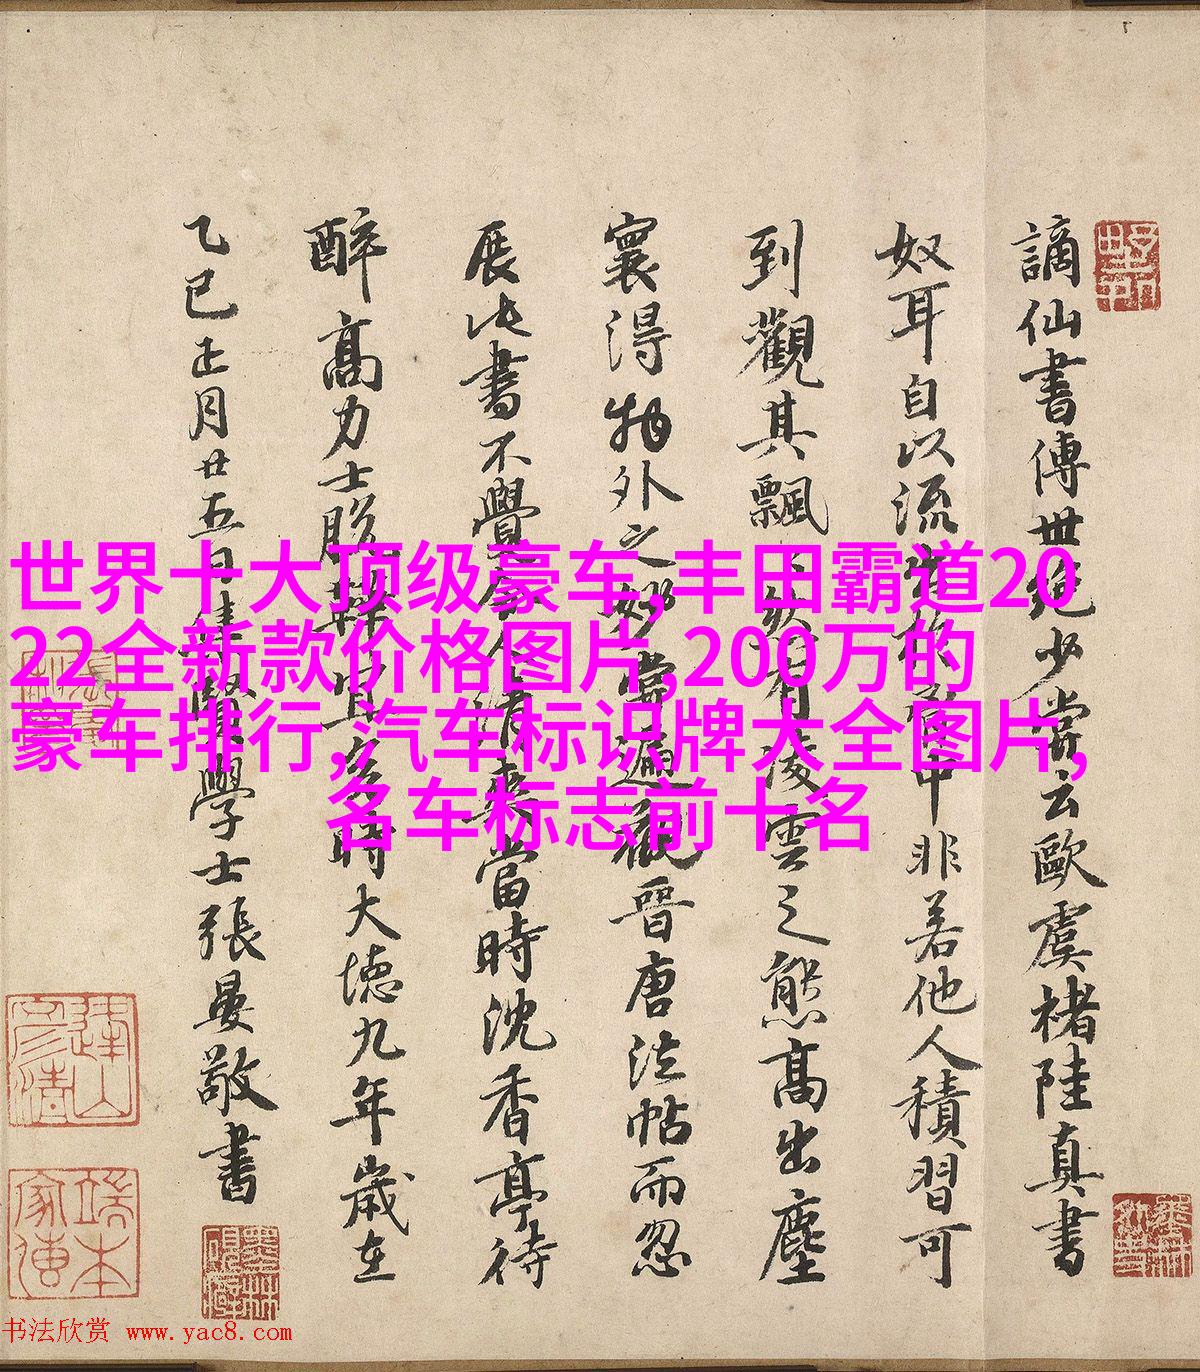 謫仙書傳世絕少嘗云歐虞褚陸真書
奴耳自以流出於胸中非若他人積習可
到觀其飄飄然有凌雲之態高出塵
寰得物外之妙嘗遍觀晉唐法帖而忽
展此書不覺令人清爽當時沈香亭待
醉高力士脫鞾宜矣時大德九年歲在
乙巳正月廿五日集賢學士張晏敬書
世界十大顶级豪车,丰田霸道20
22全新款价格图片,200万的
豪车排行,汽车标识牌大全图片,
名车标志前十名
端本
家傳
书法欣赏 www.yac8.com